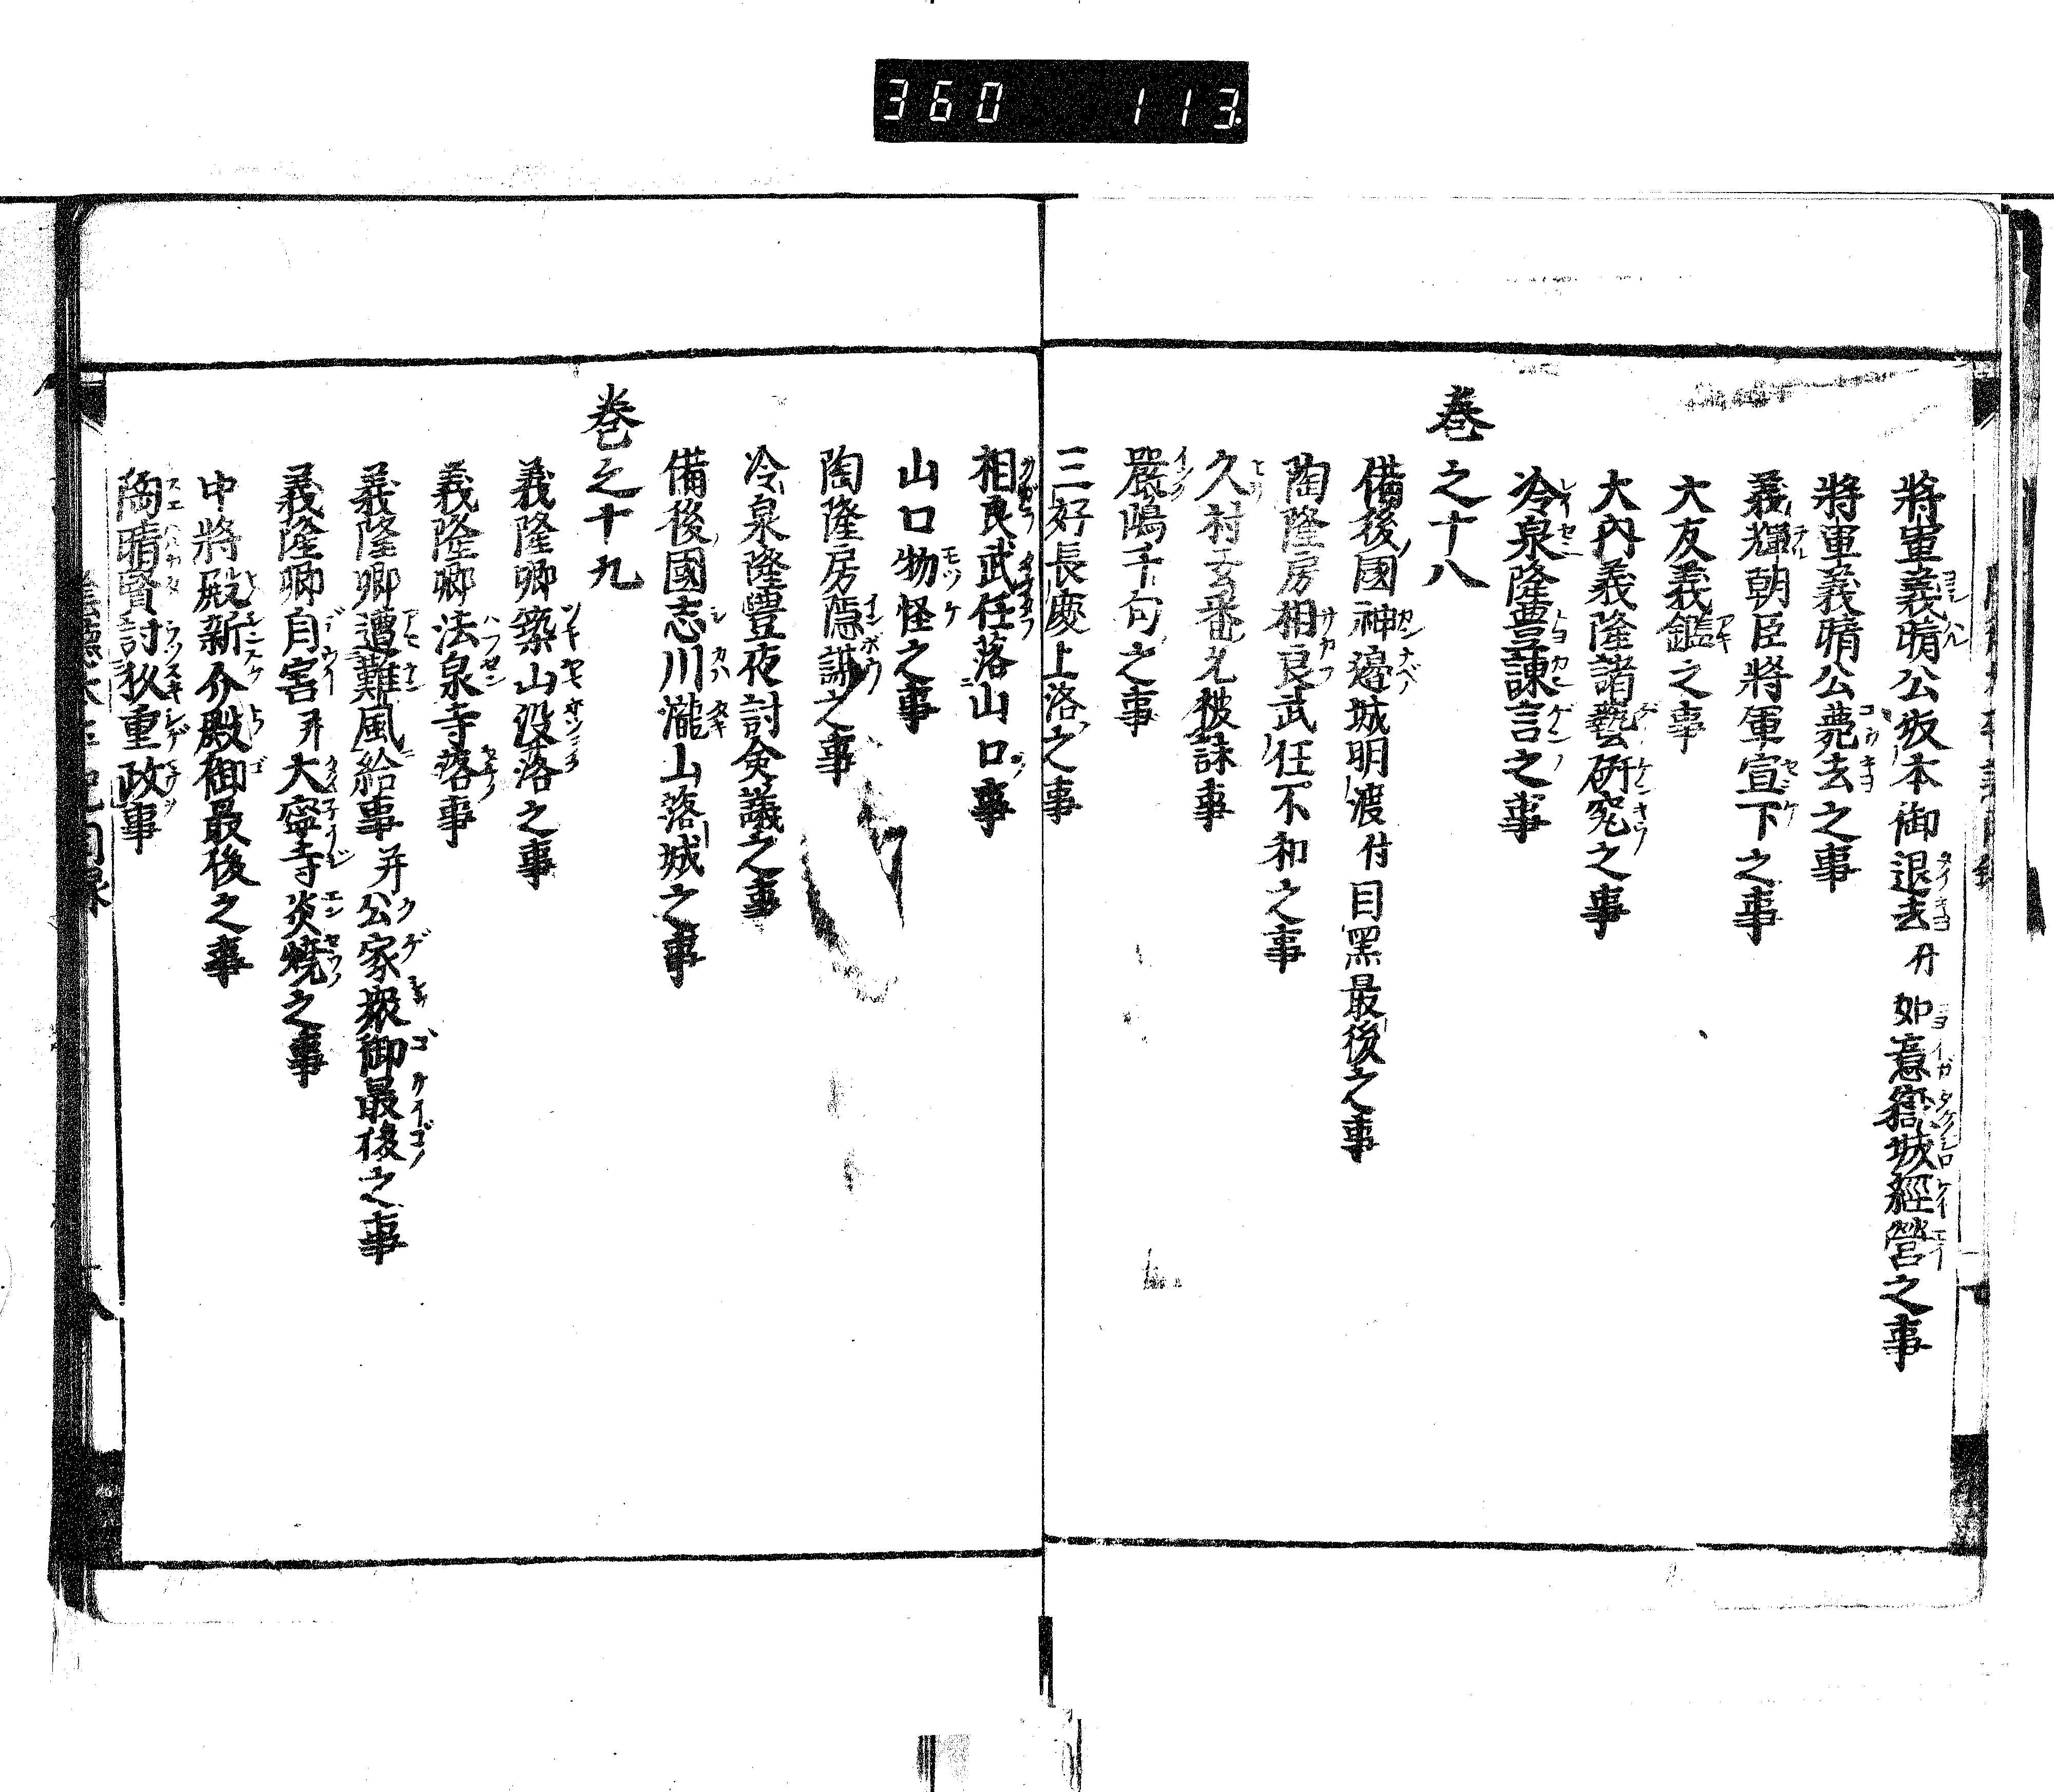 360 113
將軍義晴公坂本御退去付如意嶽城經營之事
將軍義晴公薨去之事
義輝朝臣將軍宣下之事
大友義鑑之事
大內義隆諸藝研究之事
冷泉隆豊諌言之事
巻之十八
備後國神邉城明渡付目黑最後之事
陶隆房相良武任不和之事
久村玄番允被誅事
嚴嶋千句之事
三好長慶上洛之事
相良武任落山口事
山口物怪之事
陶隆房隱謀之事
冷泉隆豐夜討僉議之事
備後國志川瀧山落城之事
巻之十九
義隆卿築山没落之事
義隆卿法泉寺落事
義隆卿遭難風給事并公家衆御最後之事
義隆卿自害并大寧寺炎燒之事
中將殿新介殿御最後之事
陶晴賢討杦重政事